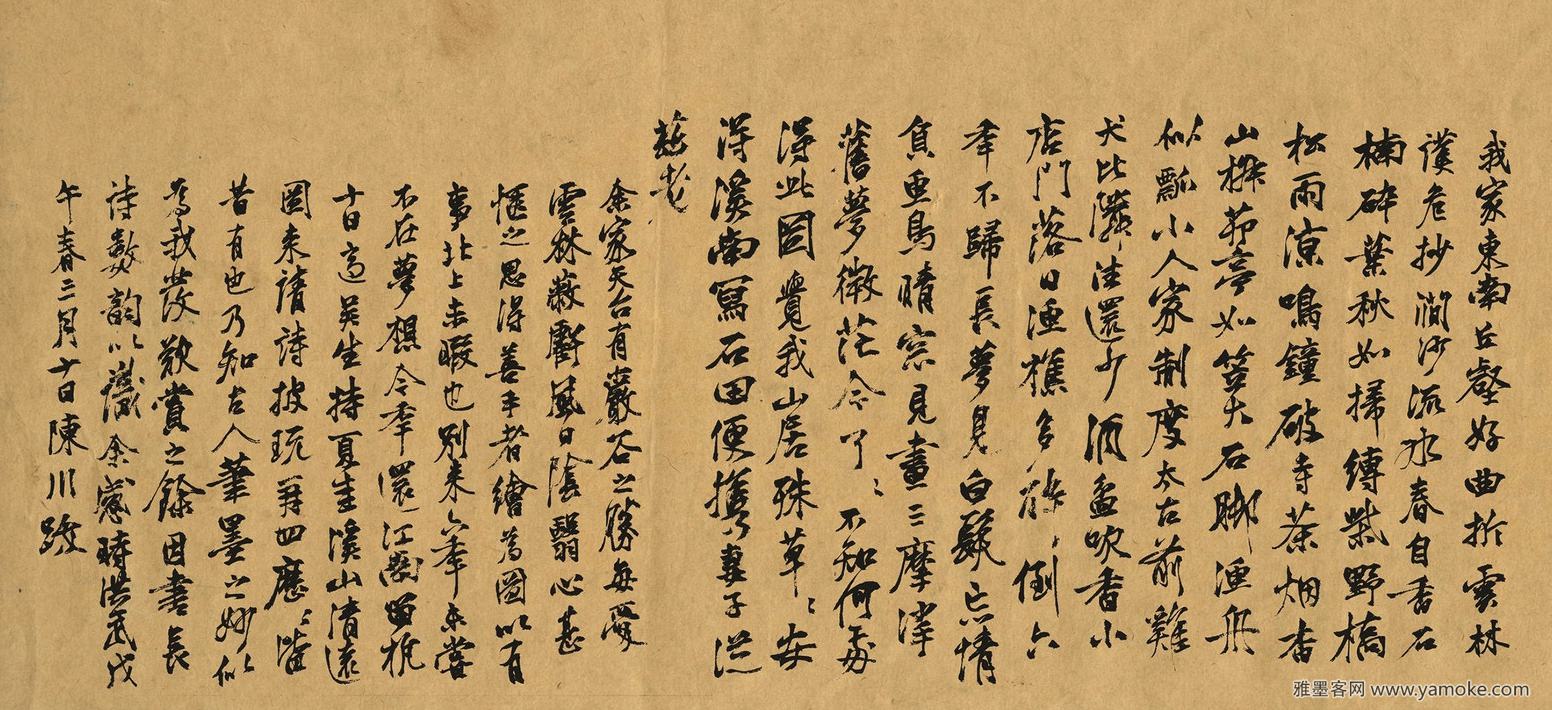 我家東南丘壑好曲折雲林
護危抄澗沙流水春自香石
楠碎葉秋如掃縛柴野橋
松雨涼鳴鐘破寺茶烟香
山樵茆亭如笠大石腳漁舟
似瓢小人家制度太古前雞
犬比隣往還少酒盈吹香小
店門落日漁樵多醉倒六
年不歸長夢見白髮忘情
負魚鳥晴窓見畫三摩挲
舊夢微茫今了了不知何處
得此圖覺我山居殊草草安
得溪南寫石田便攜妻子從
茲老
余家天台有巖谷之勝每愛
雲林蔽虧風日陰翳心甚
愜之思得善手者繪為圖以有
事北上未暇也別來六年未嘗
不在夢想今年還江南留杭
十日適吳生持夏圭溪山清遠
圖來請詩披玩再四歷歷皆
昔有也乃知古人筆墨之妙似
為我發歎賞之餘因書長
詩數韻以識余感時洪武戊
午春二月十日陳川跋
雅墨客网 www.yamoke.com